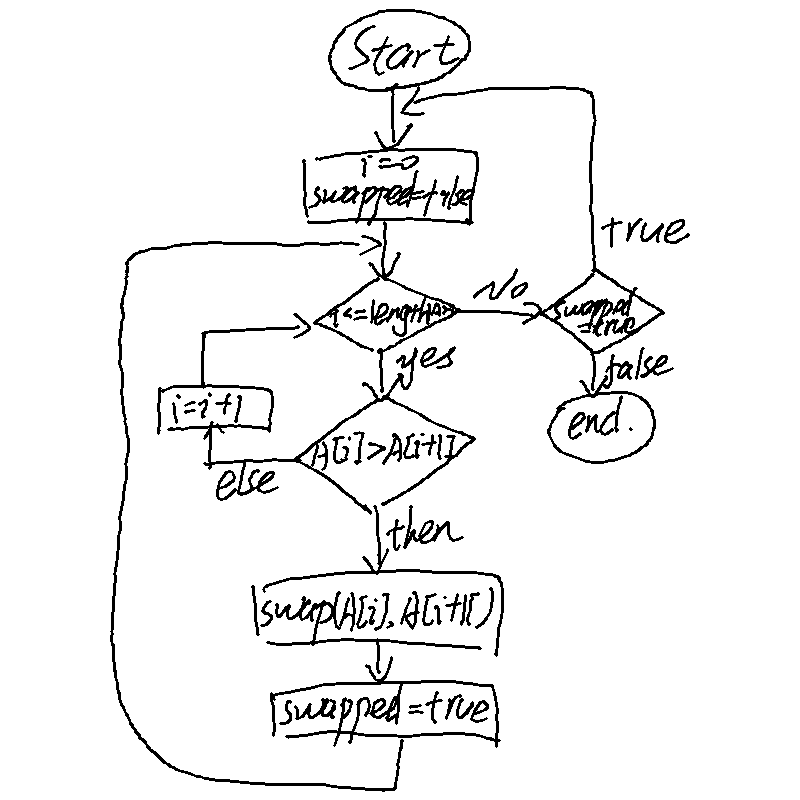 Start
i=0
swapped=false
true
i<=length(A)
No
swapped
=true
yes
false
i=i+1
end.
A[i]>A[i+1]
else
then
swap(A[i],A[i+1])
swapped=true